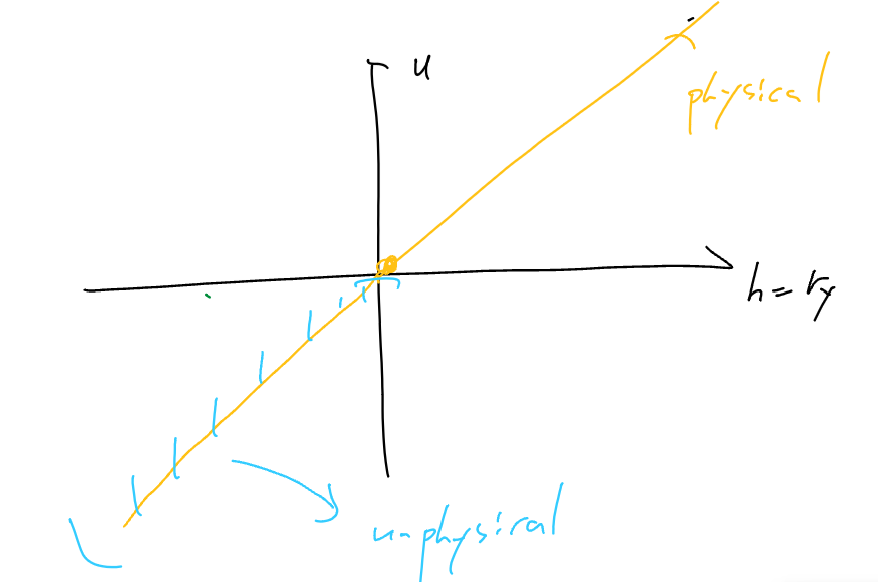 u
physical
h = ry
unphysical